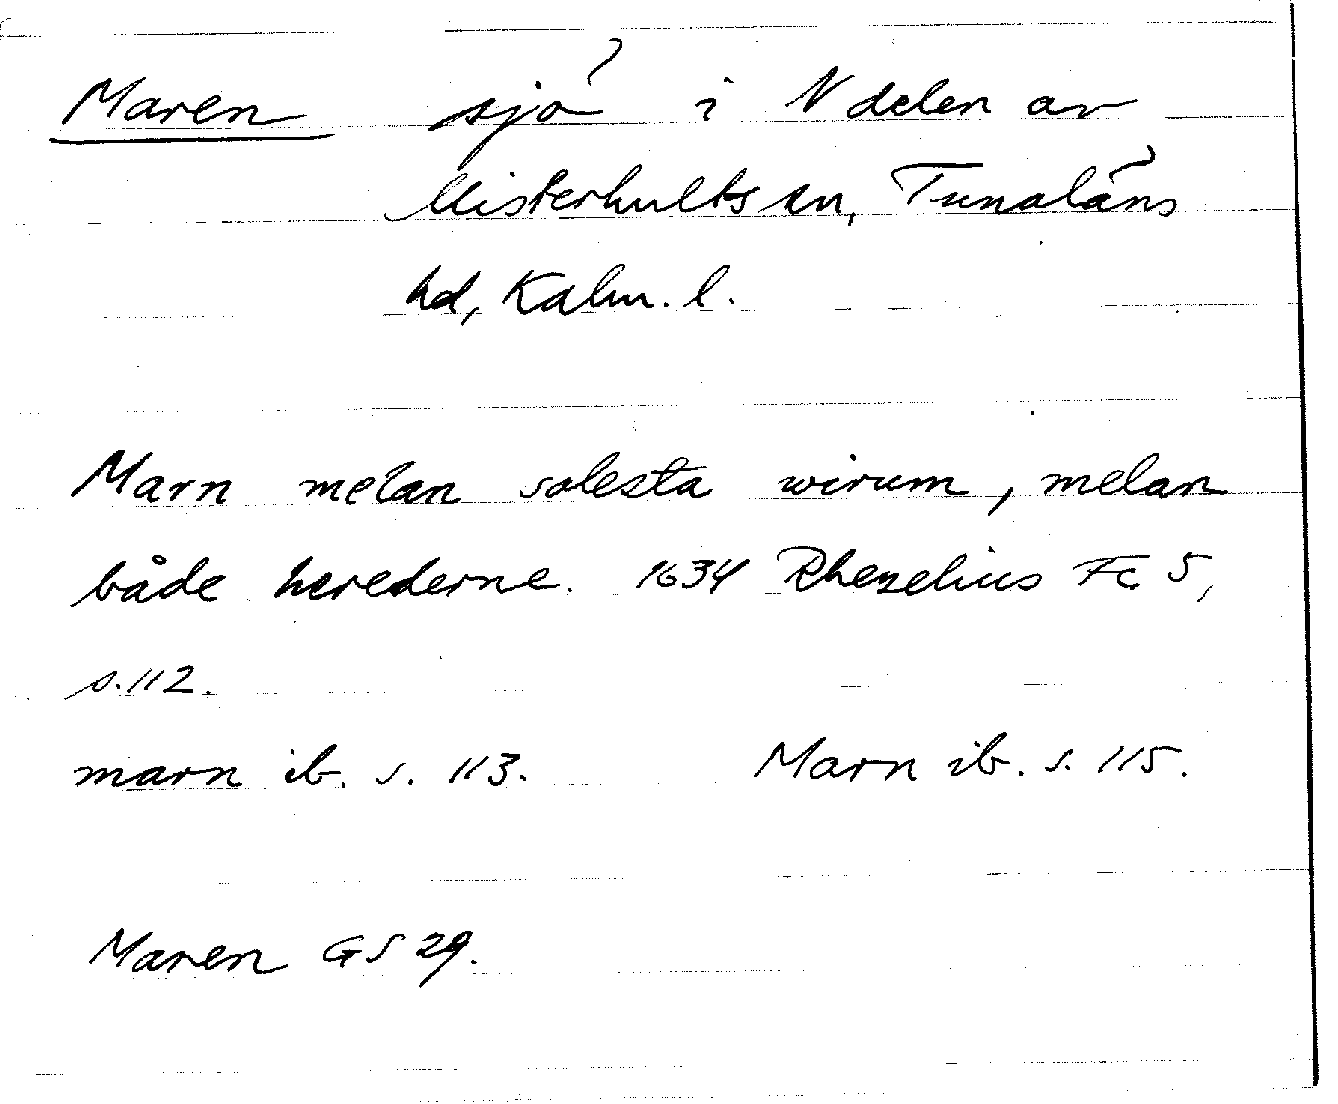 Maren sjö i N delen av
Misterhults sn, Tunaläns
hd, Kalm. l.
Marn melan solesta wirum, melan
både herederne. 1634 Rhezelius Fc 5,
s. 112.
marn ib. s. 113. Marn ib. s. 115.
Maren GS 29.